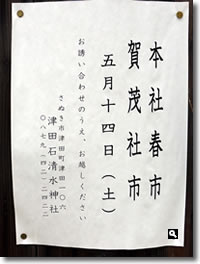 本社春市
賀茂社市
五月十四日（土）
お誘い合わせのうえ、お越しください
さぬき市津田町津田一〇六
津田石清水神社
〇八七九（四二）二四二二